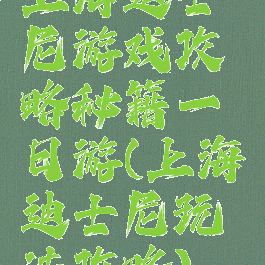 上海迪士
尼游戏攻
略秘籍一
日游(上海
迪士尼玩
法攻略)